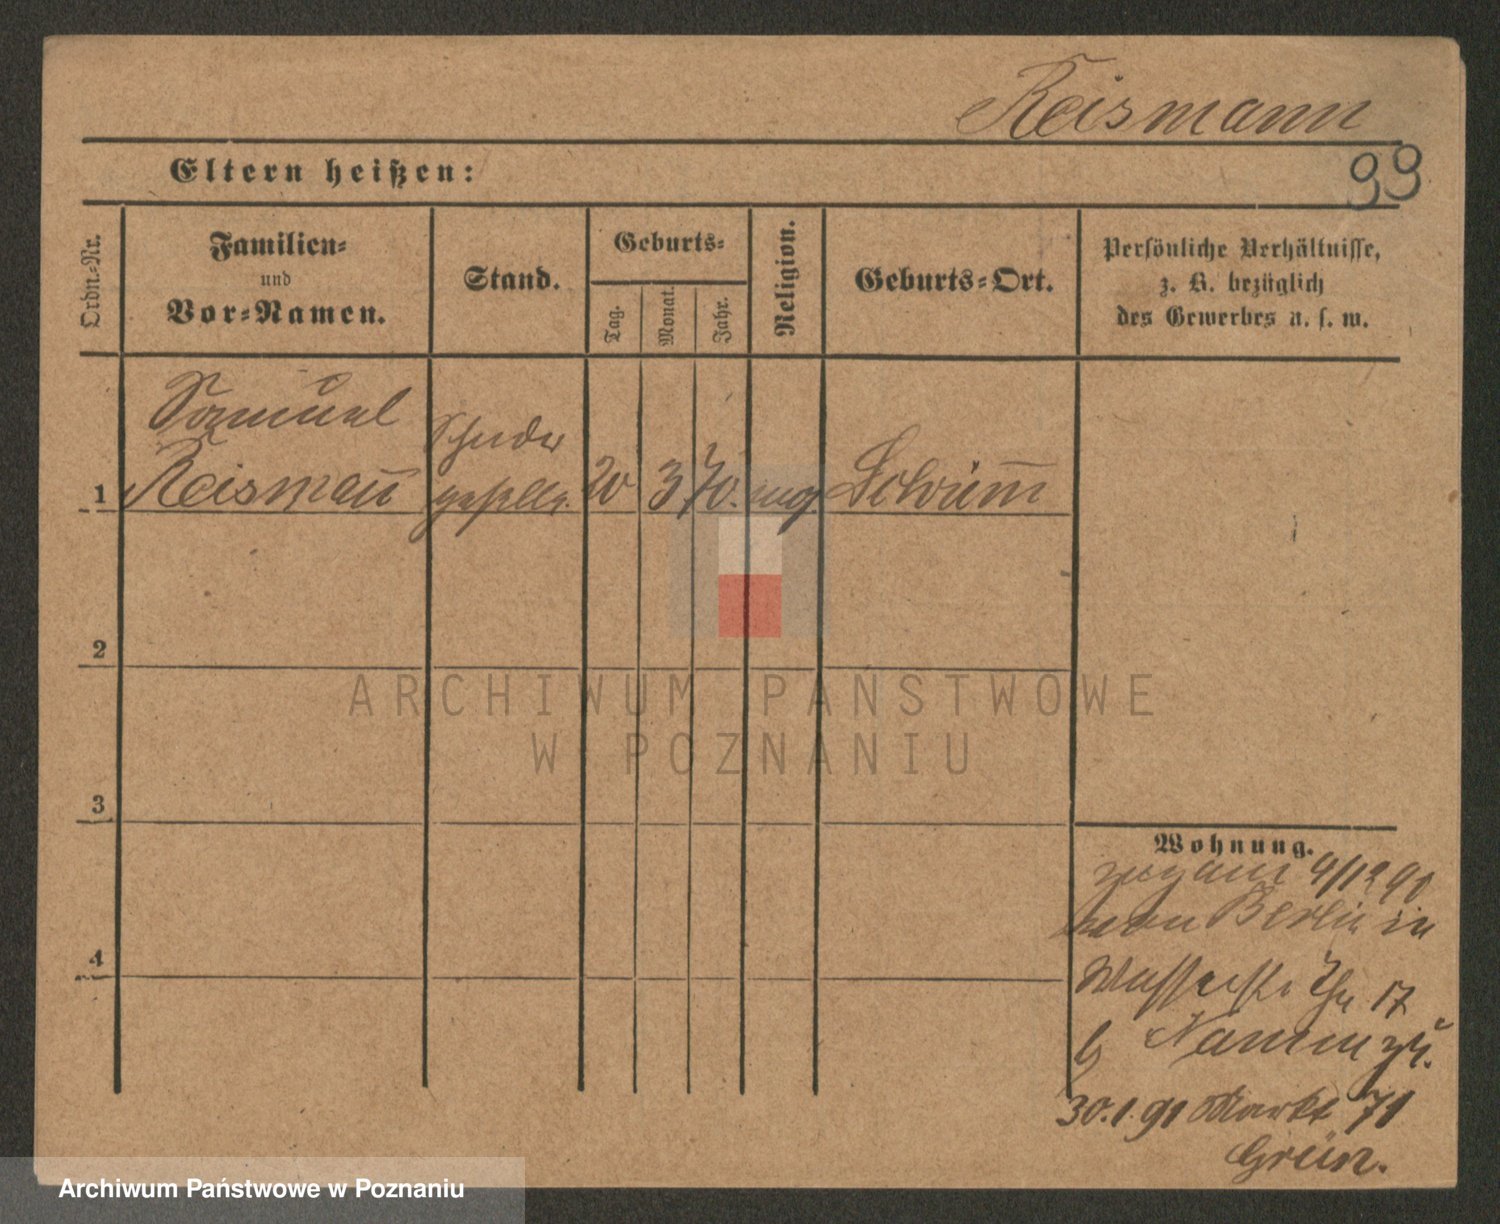 Reismann
99
Eltern heißen:
Ordn.-Nr.
Familien-
und
Vor-Namen.
Stand.
Geburts-
Tag.
Monat.
Jahr.
Religion.
Geburts-Ort.
Persönliche Verhältnisse,
z. B. bezüglich
des Gewerbes u. s. w.
Samuel
Reismañ
geselle.
1
20
3
70.
mos
Schrim̄
2
3
4
Wohnung.
4/12 90
von Berlin in
Wasserstr. 17
b
30.1.91 Markt 71
Grün.
ARCHIWUM PAŃSTWOWE
W POZNANIU
Archiwum Państwowe w Poznaniu